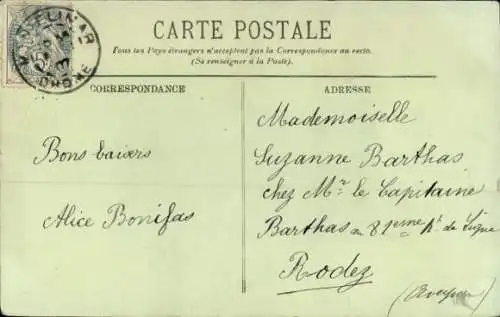 MONTELIMAR
DROME
CARTE POSTALE
Tous les Pays étrangers n'acceptent pas la Correspondance au recto.
(Se renseigner à la Poste).
CORRESPONDANCE
Bons baisers
Alice Bonifas
ADRESSE
Mademoiselle
Suzanne Barthas
chez Mr. le Capitaine
Barthas au 81eme Rt de Ligne
Rodez
(Aveyron)